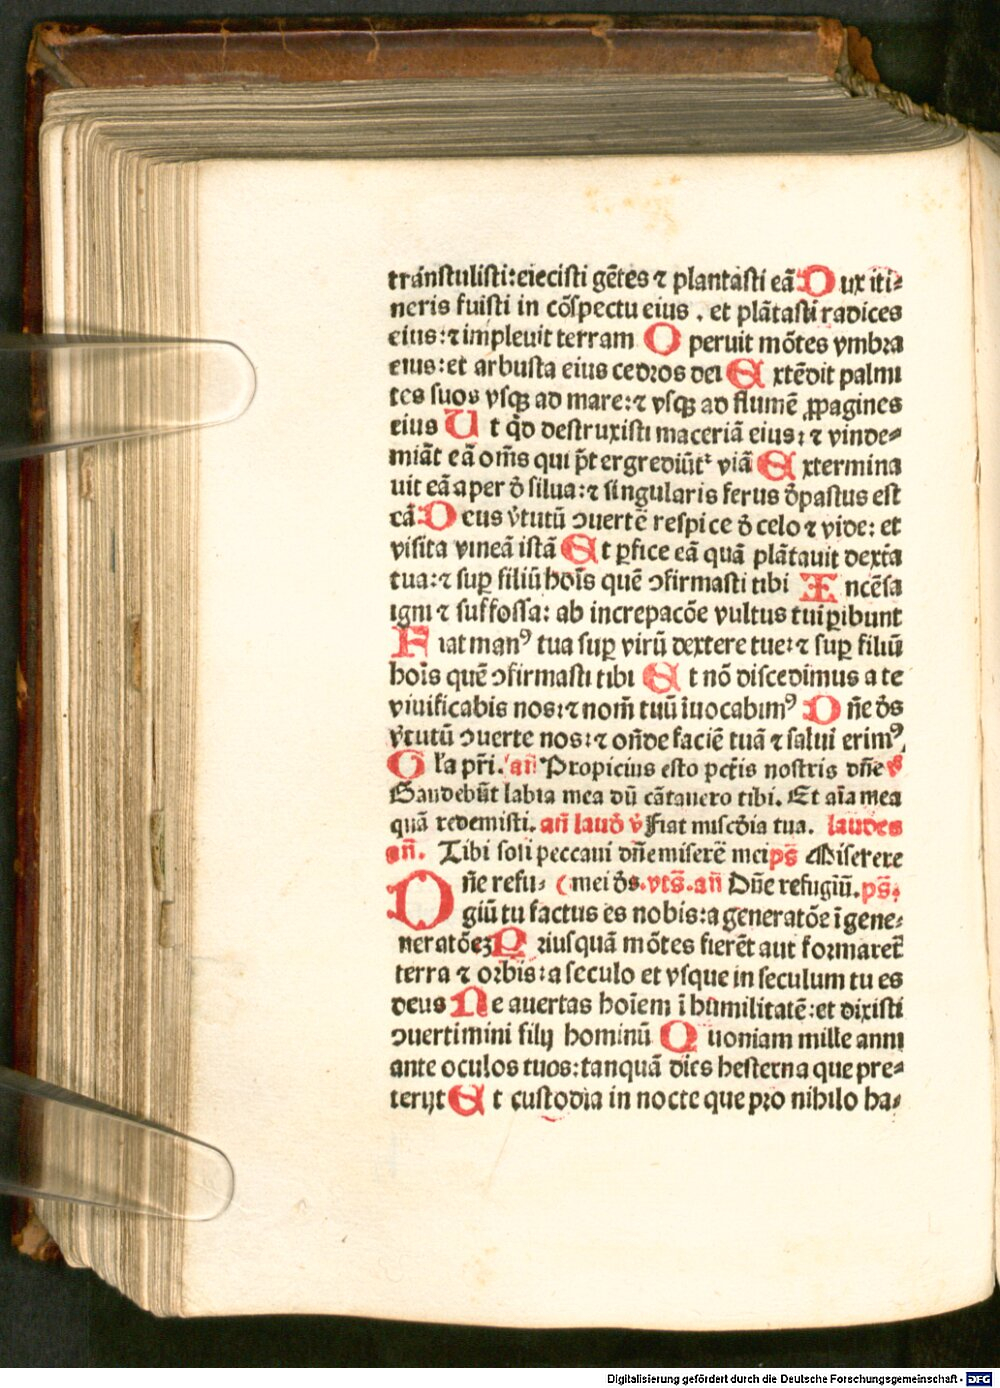 tranſtuliſti: eieciſti gētes ⁊ plantaſti eā Dux iti⸗
neris fuiſti in cōſpectu eius . et plātaſti radices
eius: ⁊ impleuit terram Operuit mōtes vmbra
eius: et arbuſta eius cedros dei Extēdit palmi
tes ſuos vſqꝫ ad mare: ⁊ vſqꝫ ad flumē ꝓpagines
eius Ut qͥd deſtruxiſti maceriā eius: ⁊ vinde⸗
miāt eā om̄s qui p̄tergrediūtᷣ viā Extermina
uit eā aper ð ſilua: ⁊ ſingularis ferus ðpaſtus eſt
eā Deus v̇tutū ↄuertē reſpice ð celo ⁊ vide: et
viſita vineā iſtā Et ꝑfice eā quā plātauit dext̄a
tua: ⁊ ſuꝑ filiū hoīs quē ↄfirmaſti tibi Incēſa
igni ⁊ ſuffoſſa: ab increpacōe vultus tui ꝑibunt
Fiat manꝰ tua ſuꝑ virū dextere tue: ⁊ ſuꝑ filiū
hoīs quē ↄfirmaſti tibi Et nō diſcedimus a te
viuificabis nos: ⁊ nom̄ tuū īuocabimꝰ Dn̄e ðs
v̇tutū ↄuerte nos: ⁊ oñde faciē tuā ⁊ ſalui erimꝰ
Gl'a pr̄i. an̄ Propicius eſto pct̄is noſtris dn̄e v̄
Gaudebūt labia mea dū cātauero tibi. Et aīa mea
quā redemiſti. an̄ laud̄ v̄ Fiat miſc̄dia tua. laudes
an̄. Tibi ſoli peccaui dn̄e miſerē mei ps̄ Miſerere
Dn̄e refu⸗ (mei ðs. vts̄. an̄ Dn̄e refugiū. ps̄.
giū tu factus es nobis: a generatōe ī gene⸗
neratōeꝫ Priuſquā mōtes fierēt aut formaret̄
terra ⁊ orbis: a ſeculo et vſque in ſeculum tu es
deus Ne auertas hoīem ī humilitatē: et dixiſti
ↄuertimini filij hominū Quoniam mille anni
ante oculos tuos: tanquā dies heſterna que pre⸗
terijt Et cuſtodia in nocte que pro nihilo ha⸗
Digitalisierung gefördert durch die Deutsche Forschungsgemeinschaft - DFG